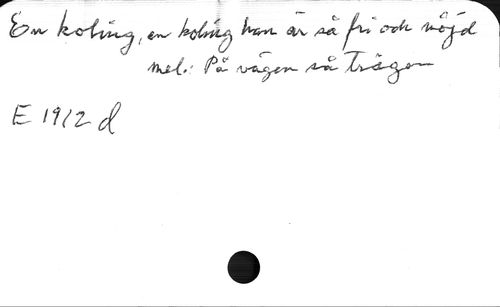 En koling, en koling han är så fri och nöjd
mel.: På vägen så trägen
E 1912 d